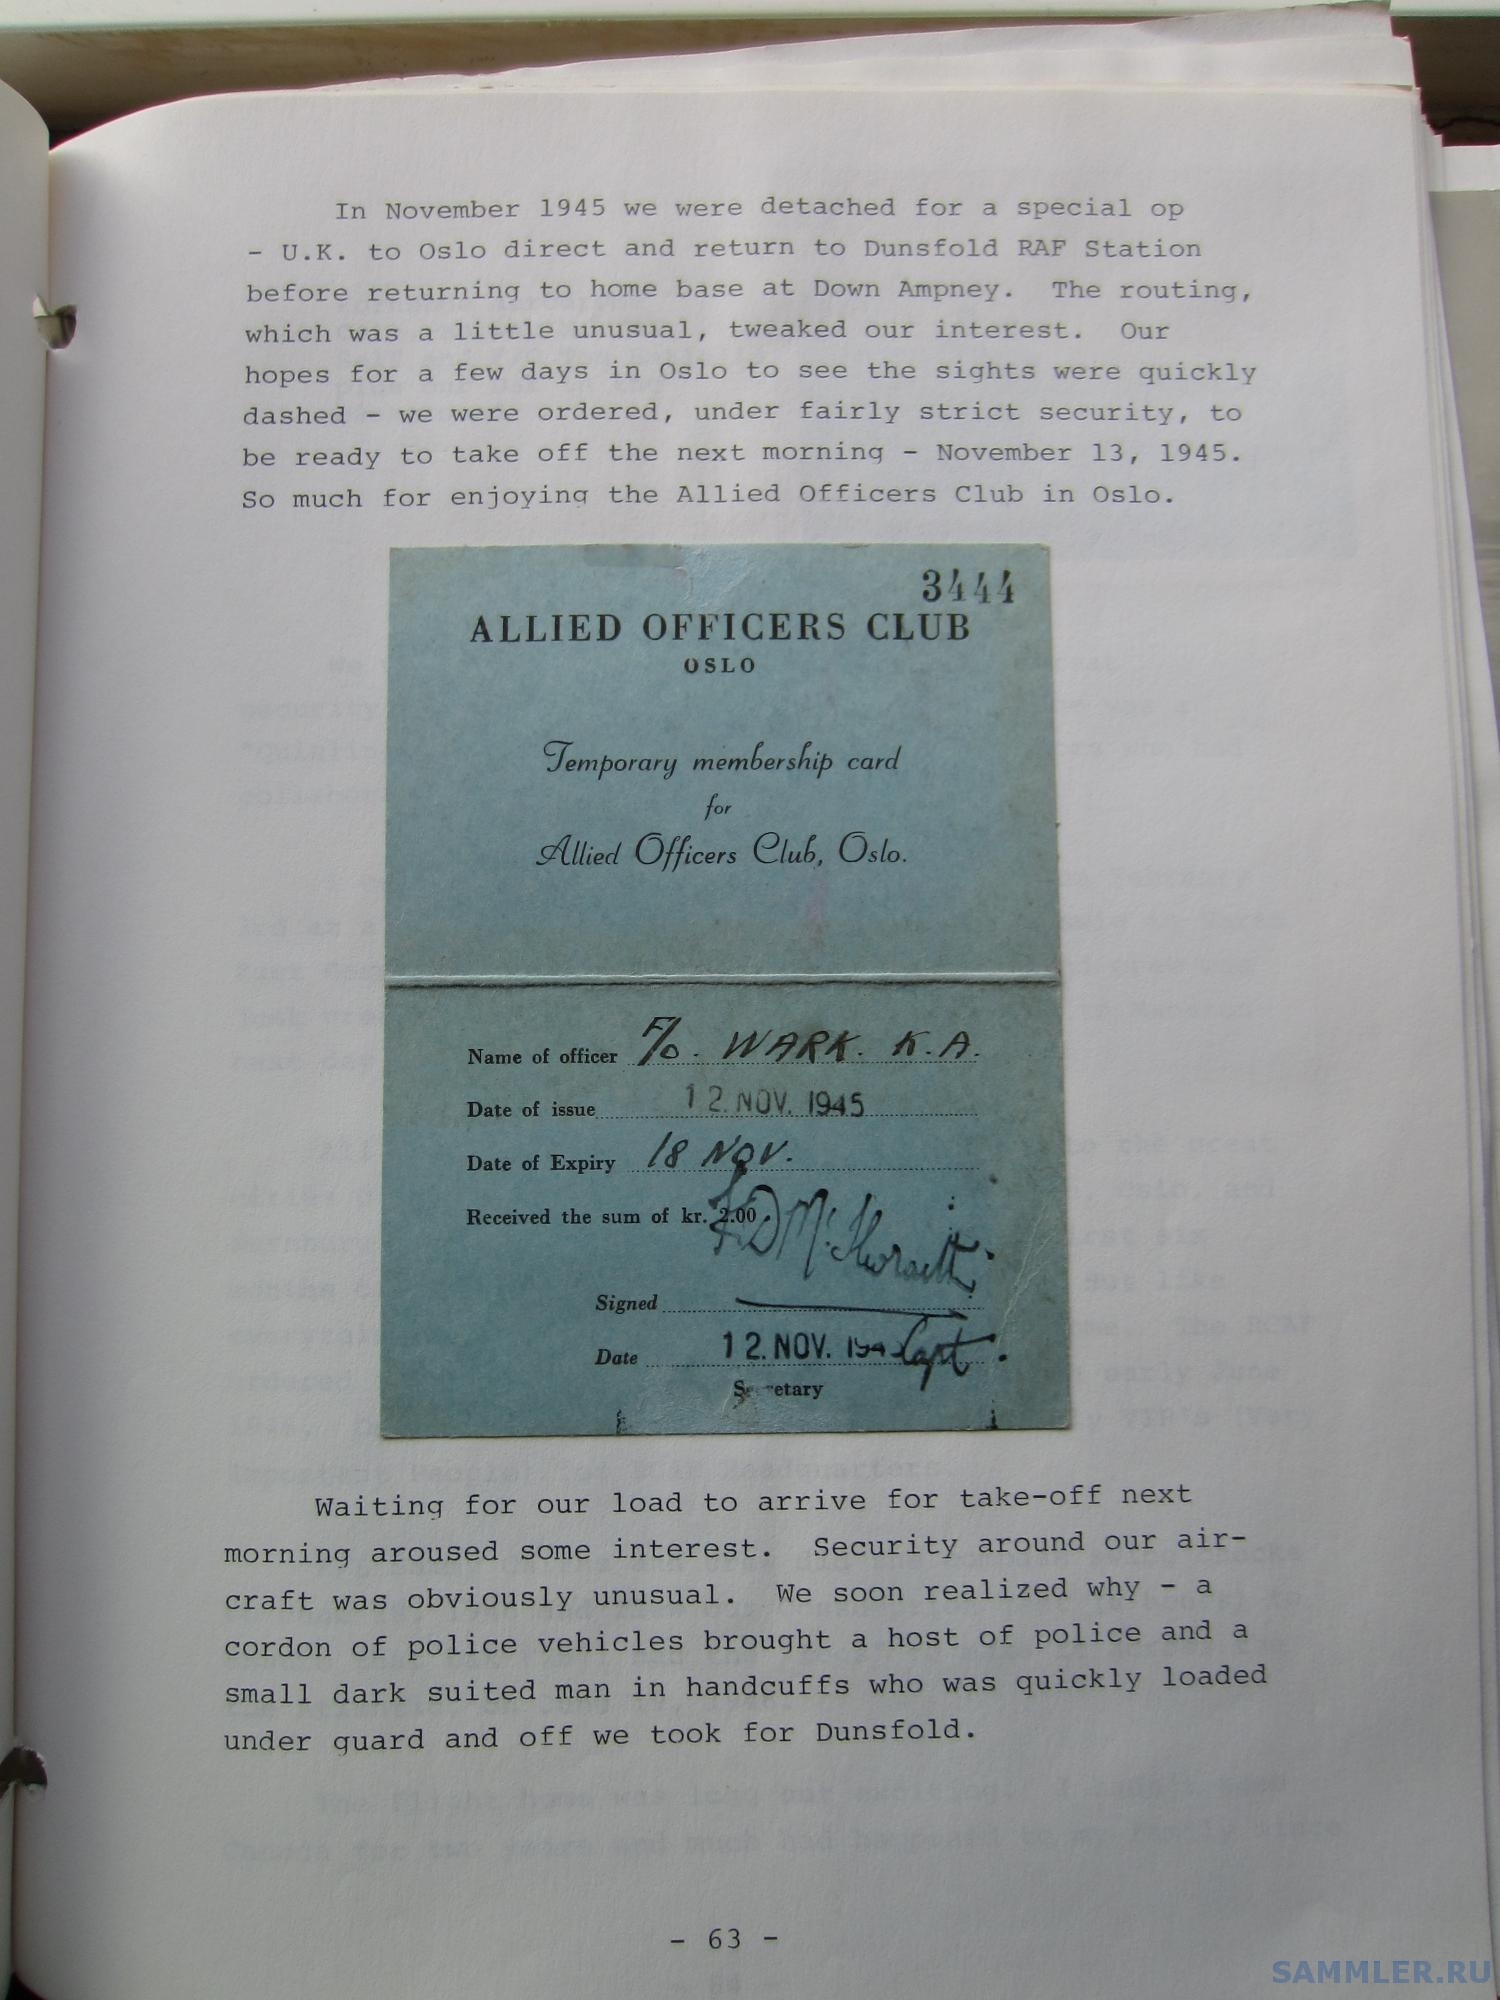 In November 1945 we were detached for a special op
- U.K. to Oslo direct and return to Dunsfold RAF Station
before returning to home base at Down Ampney. The routing,
which was a little unusual, tweaked our interest. Our
hopes for a few days in Oslo to see the sights were quickly
dashed - we were ordered, under fairly strict security, to
be ready to take off the next morning - November 13, 1945.
So much for enjoying the Allied Officers Club in Oslo.
3444
ALLIED OFFICERS CLUB
OSLO
Temporary membership card
for
Allied Officers Club, Oslo.
Name of officer F/O. WARK. K.A.
Date of issue 12. NOV. 1945
Date of Expiry 18 NOV.
Received the sum of kr. 2.00
Signed
Date 12. NOV. 1945 Capt.
Secretary
Waiting for our load to arrive for take-off next
morning aroused some interest. Security around our air-
craft was obviously unusual. We soon realized why - a
cordon of police vehicles brought a host of police and a
small dark suited man in handcuffs who was quickly loaded
under guard and off we took for Dunsfold.
- 63 -
SAMMLER.RU